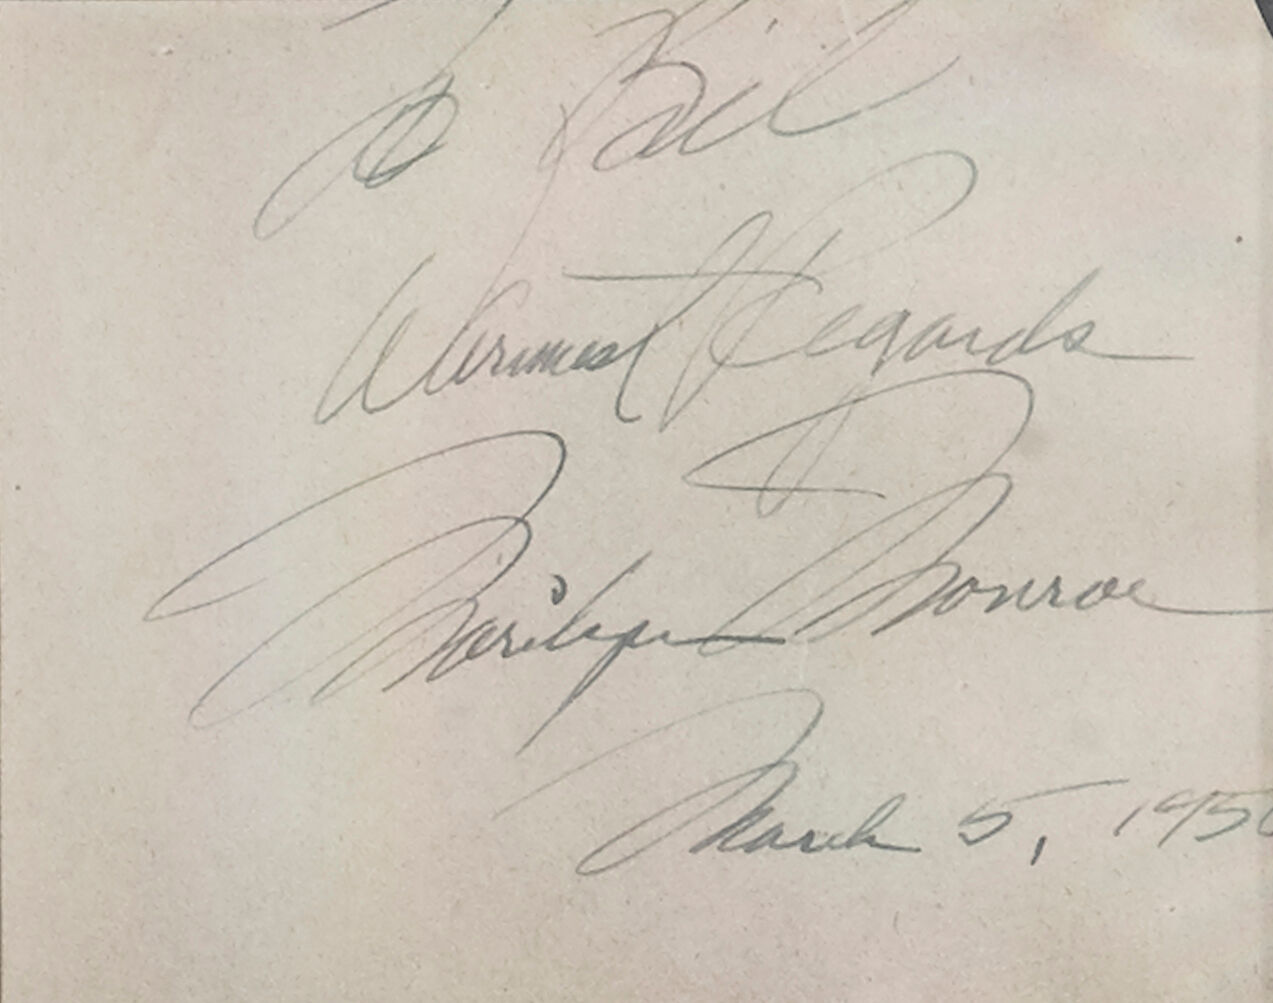 To Bill
Warmest Regards
Marilyn Monroe
March 5, 1950